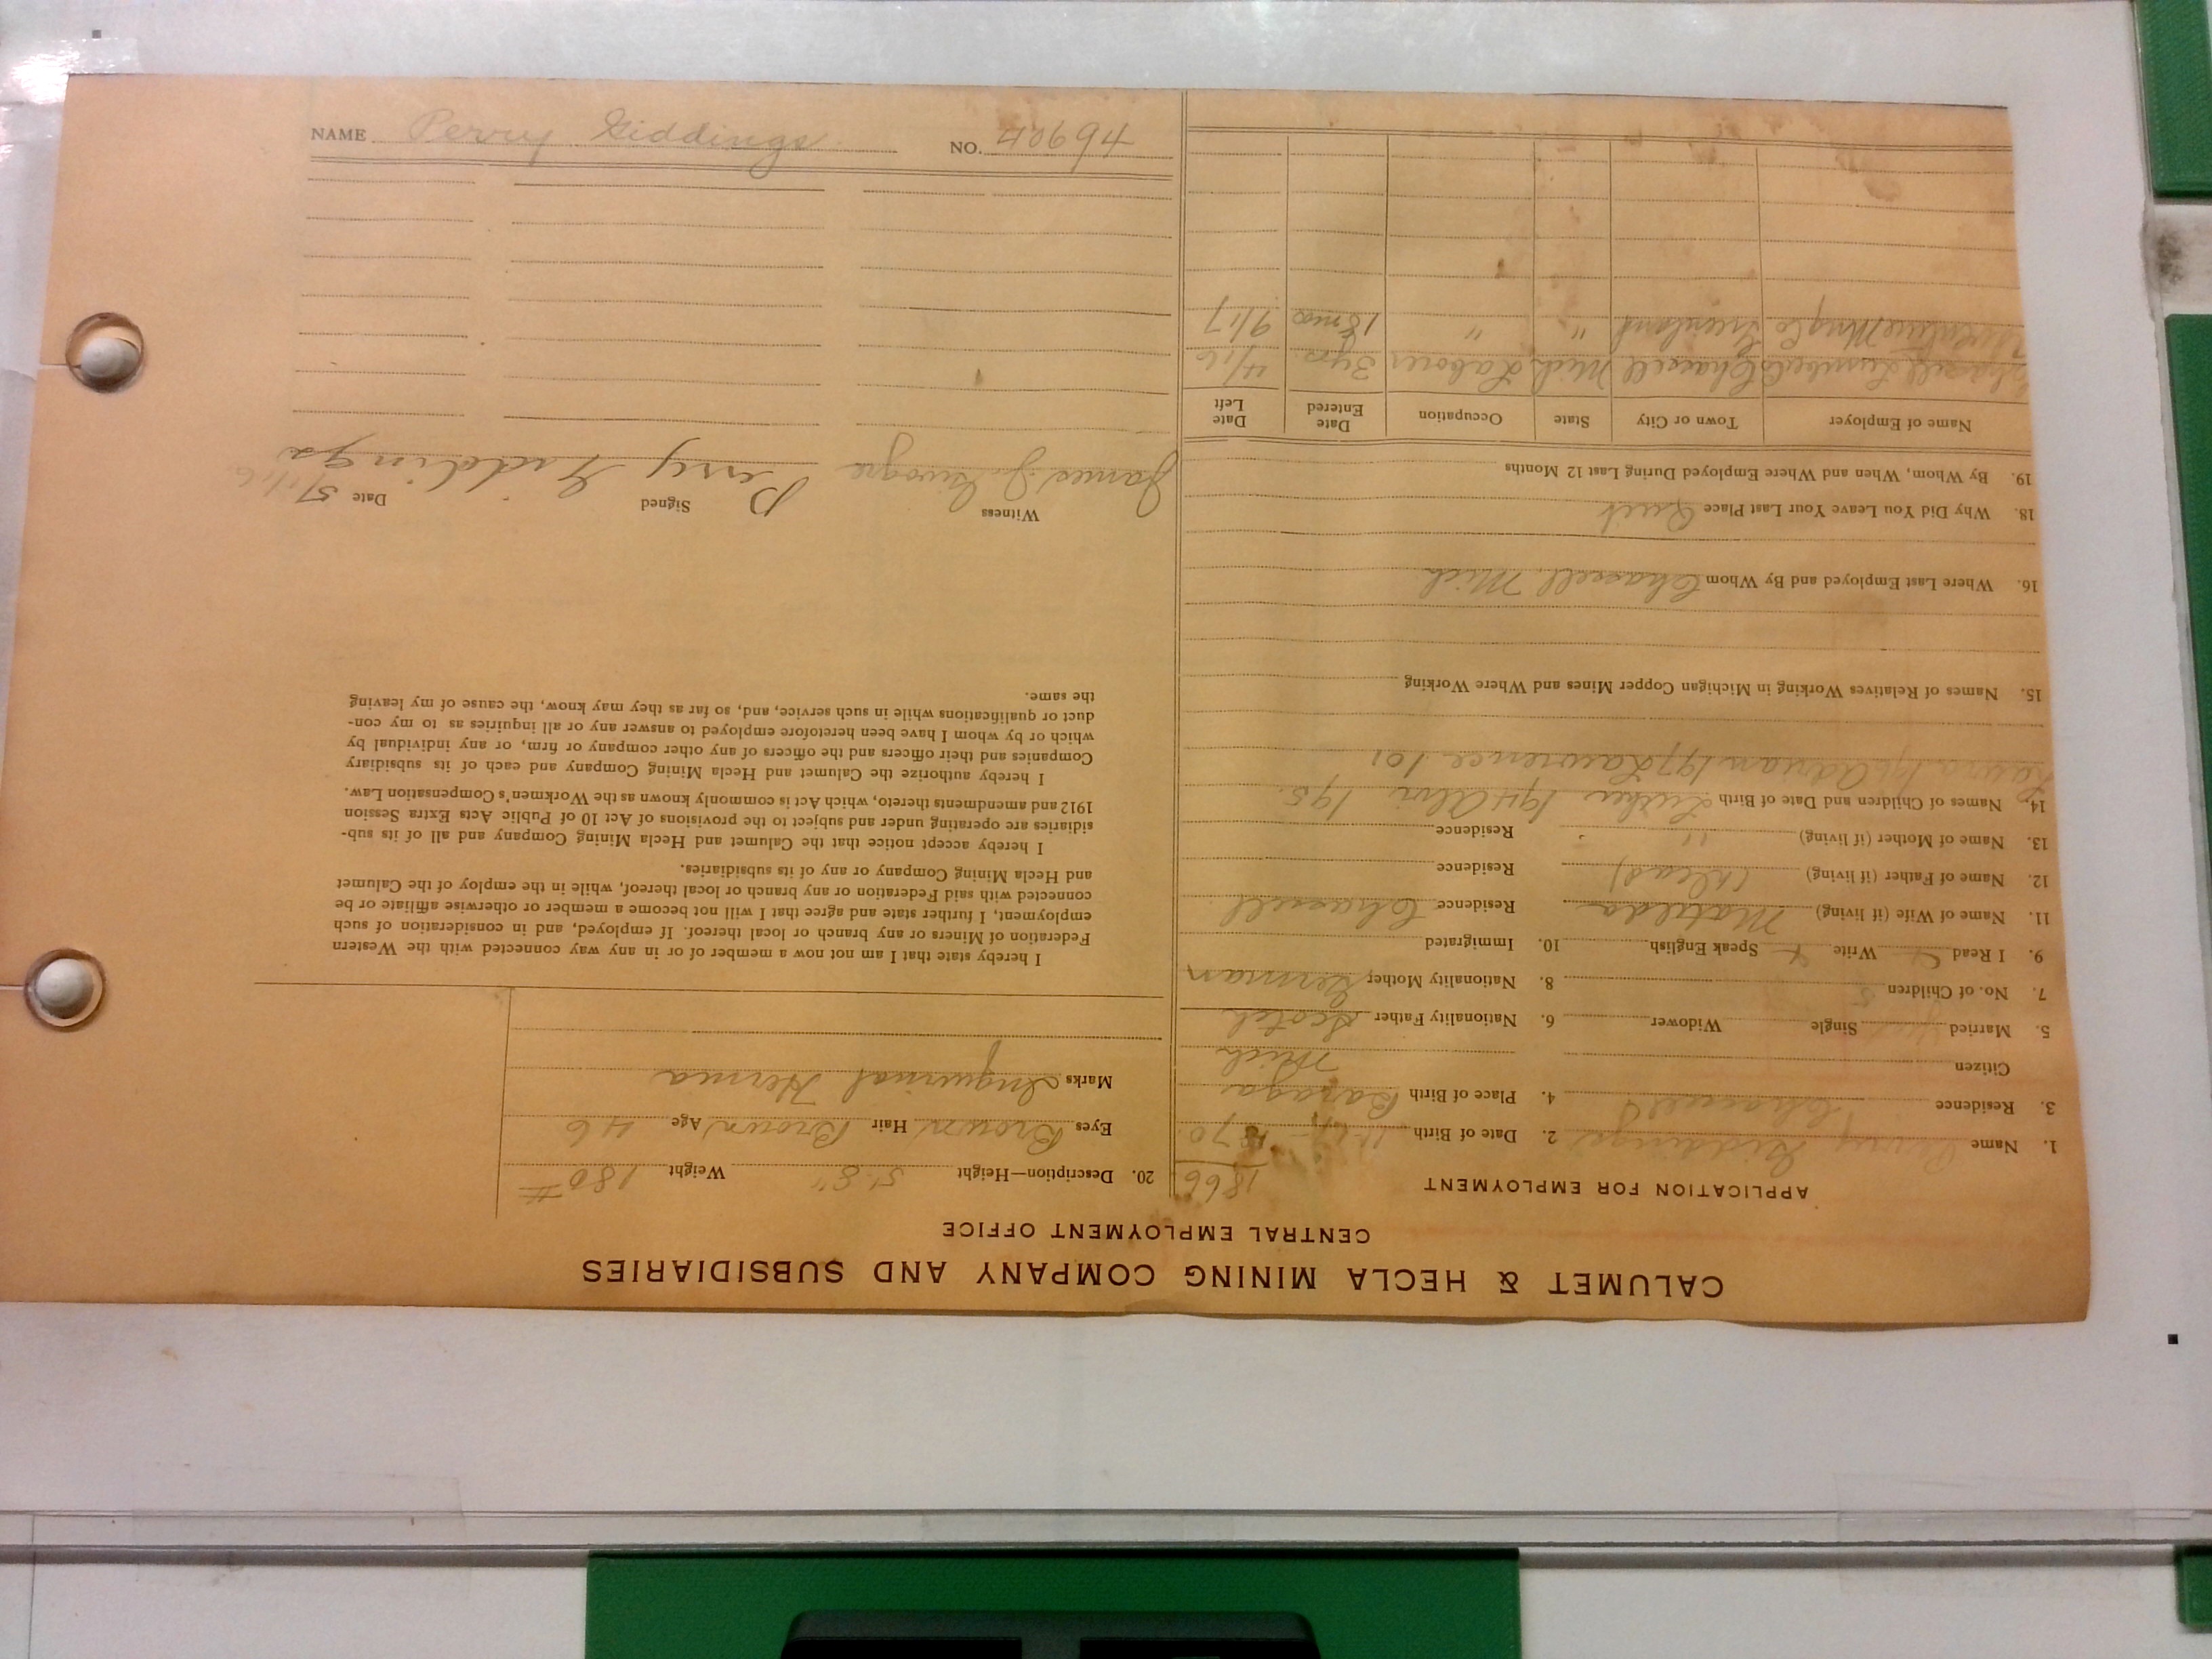 NAME Perry Giddings NO. 40694
CALUMET & HECLA MINING COMPANY AND SUBSIDIARIES
CENTRAL EMPLOYMENT OFFICE
APPLICATION FOR EMPLOYMENT
1866
1. Name Perry Giddings 2. Date of Birth 70
3. Residence Chassell 4. Place of Birth Baraga
Citizen Mich
5. Married Single Widower 6. Nationality Father Scotch
7. No. of Children 5 8. Nationality Mother German
9. I Read Write Speak English 10. Immigrated
11. Name of Wife (if living) Matilda Residence Chassell
12. Name of Father (if living) (dead) Residence
13. Name of Mother (if living) " Residence
14. Names of Children and Date of Birth Luther 194 Alvin 195.
Laura 196 Adrian 197 Lawrence 101
15. Names of Relatives Working in Michigan Copper Mines and Where Working
16. Where Last Employed and By Whom Chassell, Mich
18. Why Did You Leave Your Last Place Quit
19. By Whom, When and Where Employed During Last 12 Months
Name of Employer Town or City State Occupation Date Entered Date Left
Chassell Lumber Co Chassell Mich Laborer 3 yrs. 4/16
Mng Co Greenland " " 18 mos 9/17
20. Description—Height 5' 8" Weight 180 #
Eyes Brown Hair Brown Age 46
Marks Inguinal Hernia
I hereby state that I am not now a member of or in any way connected with the Western
Federation of Miners or any branch or local thereof. If employed, and in consideration of such
employment, I further state and agree that I will not become a member or otherwise affiliate or be
connected with said Federation or any branch or local thereof, while in the employ of the Calumet
and Hecla Mining Company or any of its subsidiaries.
I hereby accept notice that the Calumet and Hecla Mining Company and all of its sub-
sidiaries are operating under and subject to the provisions of Act 10 of Public Acts Extra Session
1912 and amendments thereto, which Act is commonly known as the Workmen's Compensation Law.
I hereby authorize the Calumet and Hecla Mining Company and each of its subsidiary
Companies and their officers and the officers of any other company or firm, or any individual by
which or by whom I have been heretofore employed to answer any or all inquiries as to my con-
duct or qualifications while in such service, and, so far as they may know, the cause of my leaving
the same.
Witness Signed Date 5/1/16
James J. Perry Giddings